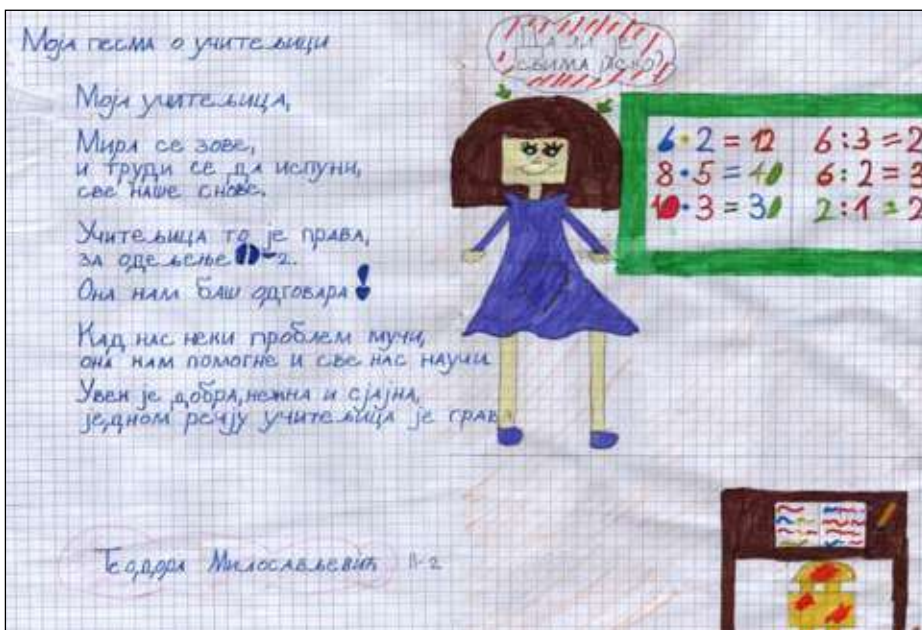 Моја песма о учитељици
Моја учитељица,
Мира се зове,
и труди се да испуни,
све наше снове.
Учитељица то је права,
за одељење II-2.
Она нам баш одговара!
Кад нас неки проблем мучи,
она нам помогне и све нас научи
Увек је добра, нежна и сјајна,
једном речју учитељица је
Теодора Милосављевић II-2
Да ли је
свима јасно?
6·2=12
8·5=40
10·3=30
6:3=2
6:2=3
2:1=2